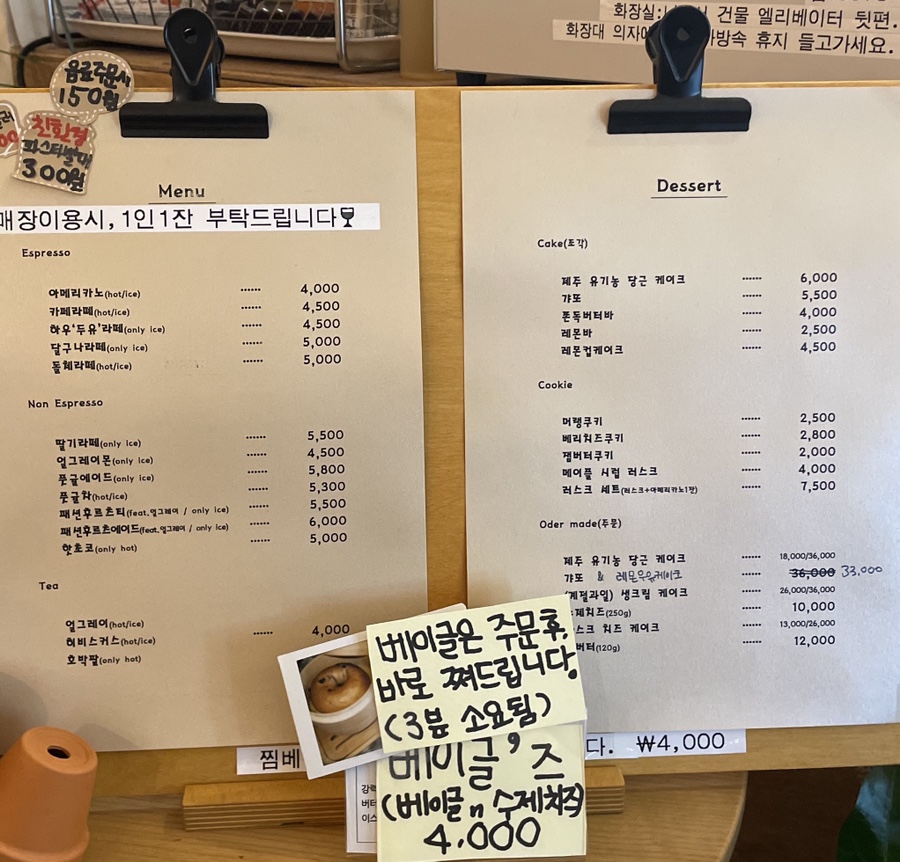 화장실: 건물 엘리베이터 뒷편.
화장대 의자에 가방속 휴지 들고가세요.
음료주문시
150원
친환경
파스타빨대
300원
Menu
매장이용시, 1인1잔 부탁드립니다🍷
Espresso
아메리카노(hot/ice) ...... 4,000
카페라떼(hot/ice) 4,500
하우'두유'라떼(only ice) ...... 4,500
달구나라떼(only ice) ...... 5,000
돌체라떼(hot/ice) ...... 5,000
Non Espresso
딸기라떼(only ice) ...... 5,500
얼그레이몬(only ice) ...... 4,500
풋귤에이드(only ice) ...... 5,800
풋귤차(hot/ice) ...... 5,300
패션후르츠티(feat.얼그레이 / only ice) ...... 5,500
패션후르츠에이드(feat.얼그레이 / only ice) ...... 6,000
핫초코(only hot) ...... 5,000
Tea
얼그레이(hot/ice)
히비스커스(hot/ice) ...... 4,000
호박팥(only hot)
Dessert
Cake(조각)
제주 유기농 당근 케이크 ...... 6,000
갸또 ...... 5,500
쫀득버터바 ...... 4,000
레몬바 ...... 2,500
레몬컵케이크 ...... 4,500
Cookie
머랭쿠키 ...... 2,500
베리치즈쿠키 ...... 2,800
잼버터쿠키 ...... 2,000
메이플 시럽 러스크 ...... 4,000
러스크 세트(러스크+아메리카노1잔) ...... 7,500
Oder made(주문)
제주 유기농 당근 케이크 ...... 18,000/36,000
갸또 & ...... 36,000 33,000
(계절과일) 생크림 케이크 ...... 26,000/36,000
제치즈(250g) ...... 10,000
스크 치즈 케이크 ...... 13,000/26,000
버터(120g) ...... 12,000
베이글은 주문후,
바로 쪄드립니다.
(3분 소요됨)
찜베
다. ₩4,000
베이글's 즈
(베이글 n 수제치즈)
4,000
강력
버터
이스